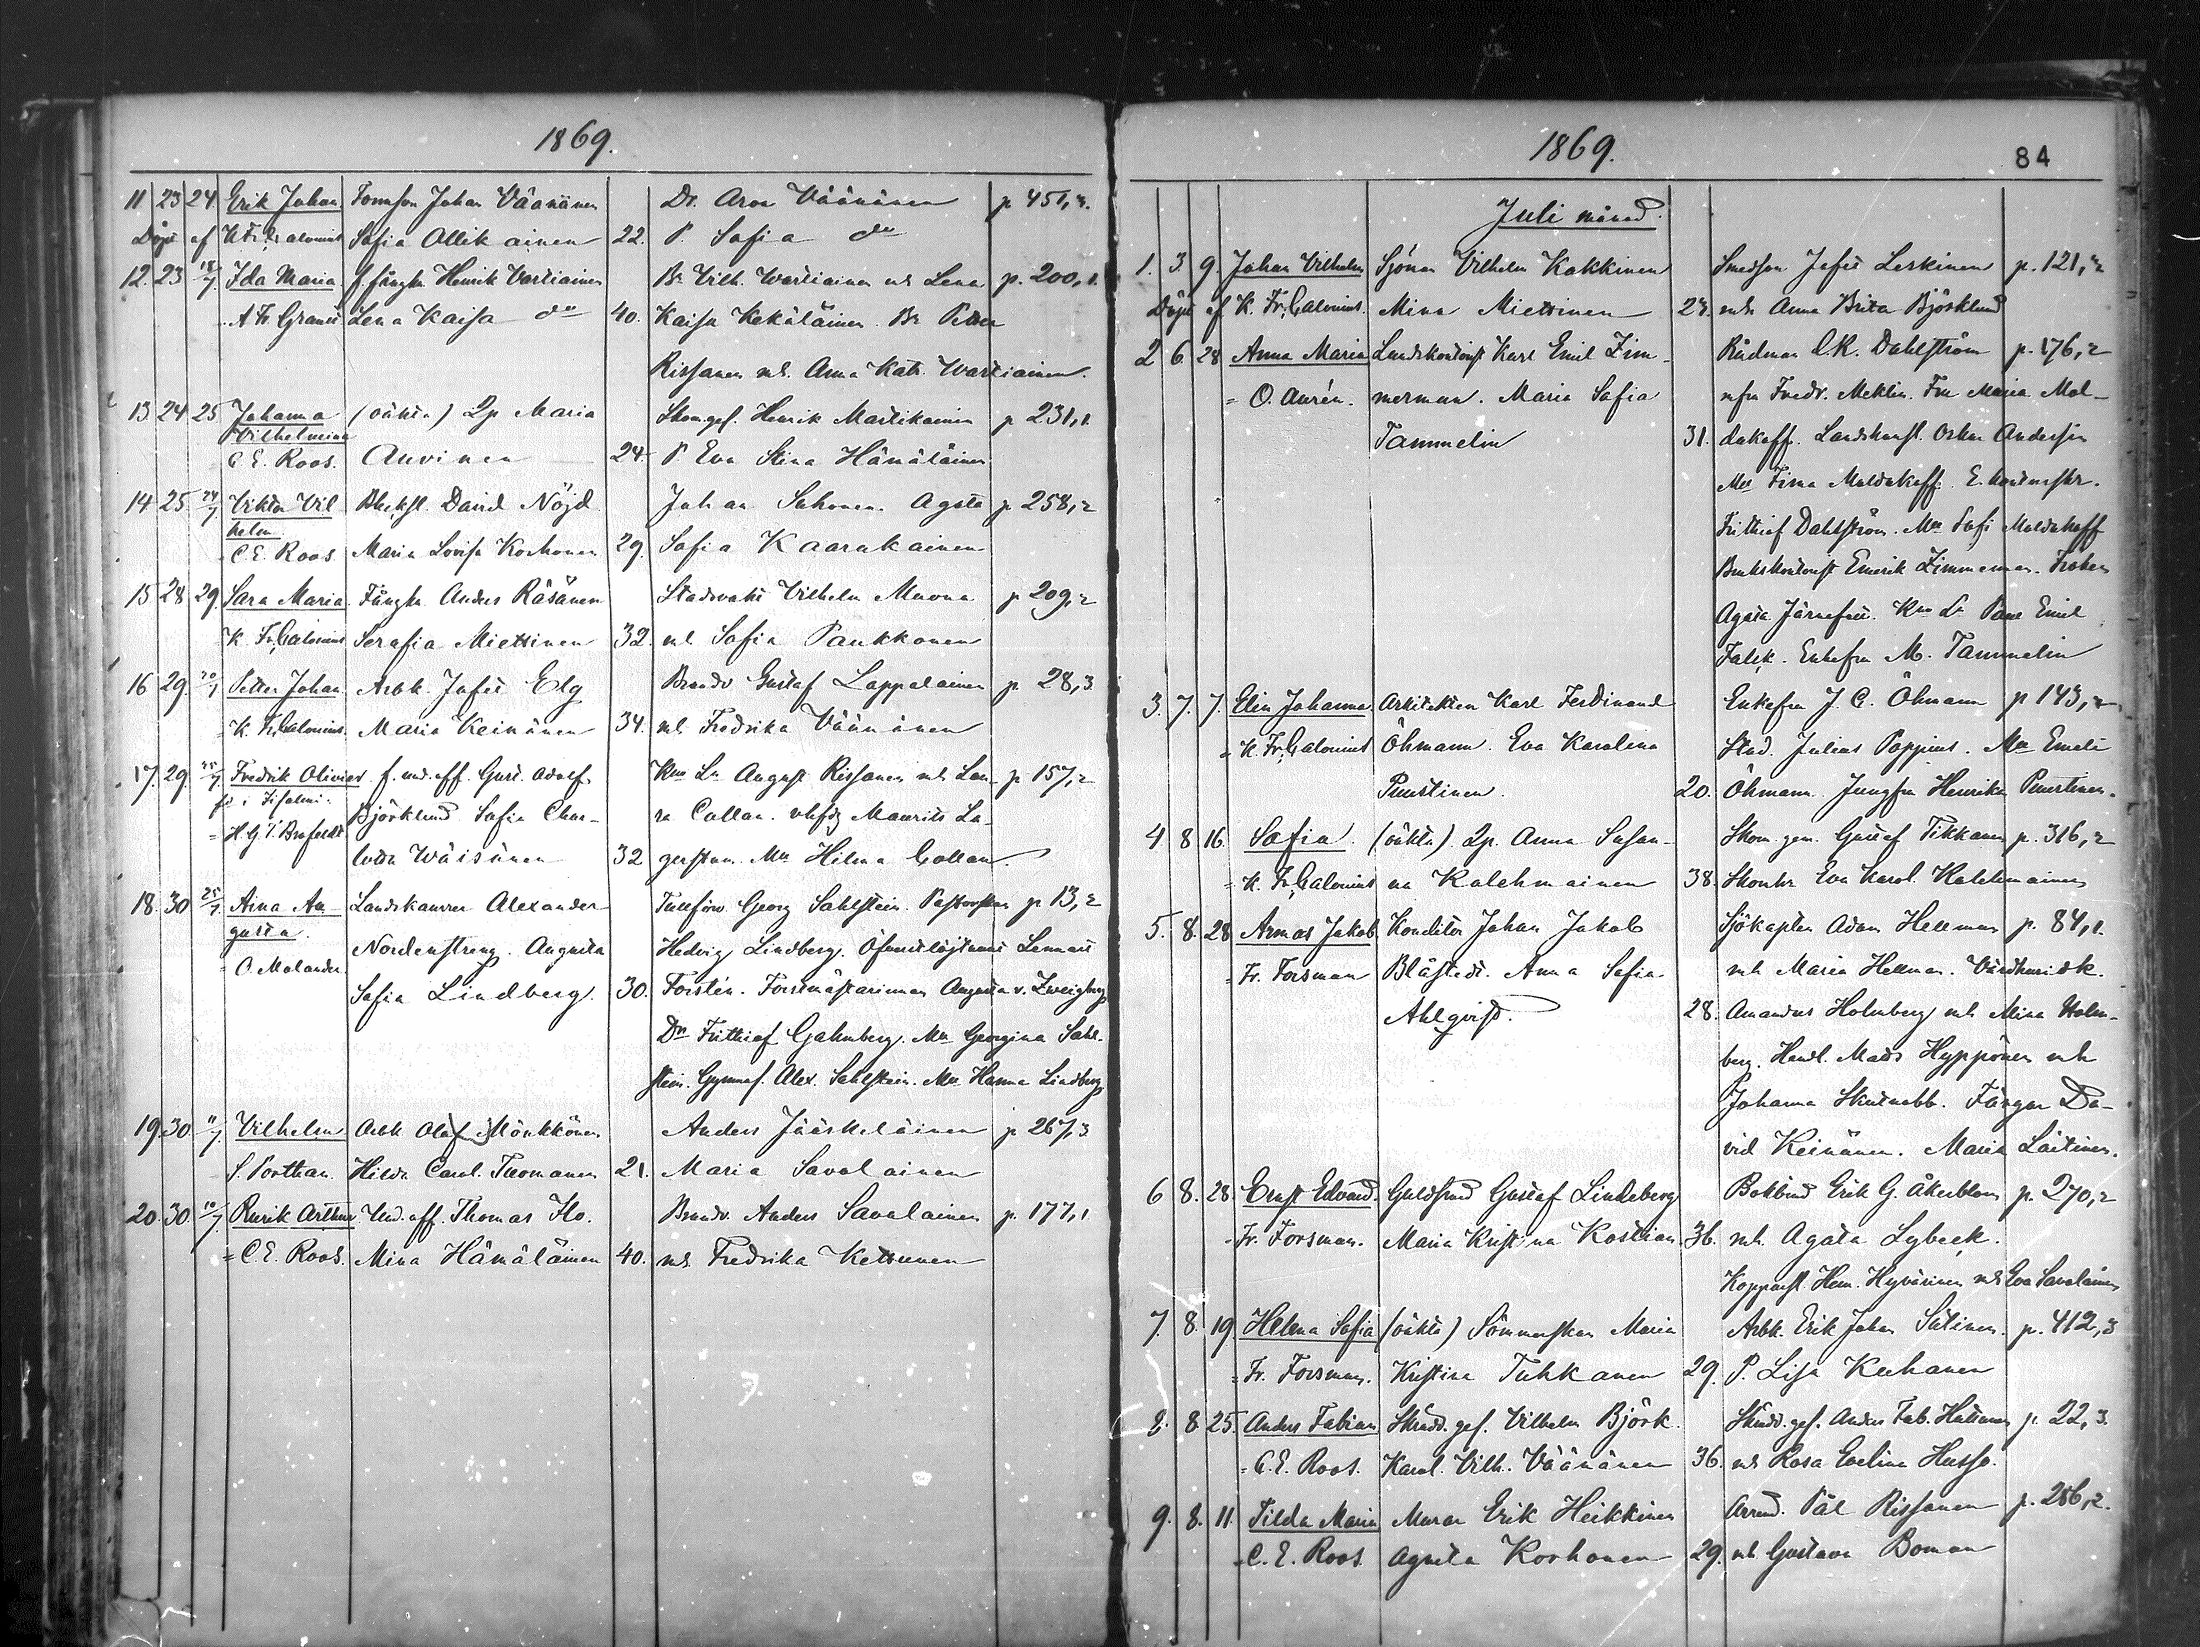 1869.
11 23 24 Erik Johan Tomson Johan Väänänen Dr. Aron Väänänen p 451,3.
Döpt af K. Fr. Calonius Sofia Ollikainen 22. P. Sofia do
12. 23 18/7 Ida Maria f. fångkn Henrik Vartiainen Br Vilh. Wartiainen mh Lena p. 200,1.
A Fr Granit Lena Kaisa do 40. Kaisa Kekäläinen. Br Petter
Rissanen mh. Anna Katr. Wartiainen.
13 24 25 Johanna (oäkta) Qp Maria Skom.ges. Henrik Martikainen p 231,1.
Wilhelmina
C E. Roos. Auvinen 24 P Eva Stina Hämäläinen
14 25 24/7 Viktor Vil David Nöjd Johan Sahonen. Agata p 258,2
helm
C. E. Roos Maria Lovisa Korhonen 29. Sofia Kaarakainen
15 28 29. Sara Maria Fångkn Anders Räsänen Stadsvakt Vilhelm Muona p 209,2
K Fr. Calonius Serafia Miettinen 32. mh Sofia Paukkonen
16 29. 20/7 Petter Johan Arbk. Josef Elg Brandv Gustaf Lappalainen p 28,3.
K. Fr. Calonius. Maria Keinänen 34. mh. Fredrika Väänänen
17. 29. 25/7 Fredrik Olivier f. und.off. Gust. Adolf Km Ln August Rissanen mh Lau- p 157,2
fd i Iisalmi. Björklund Sofia Char- ra Collan. Maurits La-
H. G. T. Brofeldt lotta Wäisänen 32 gerstam. Mll Hilma Collan
18. 30 25/7 Aina Au- Landskamrer Alexander Tullförv. Georg Sahlstein. Pastorskan p 13,2
gusta. Nordenstreng. Augusta Hedvig Lindberg. Öfverstlöjtnant Lennart
O. Molander Sofia Lindberg. 30. Forstén. Forstmästarinnan Augusta v. Zweigberg
Dr Frithiof Gahmberg. Mll Georgina Sahl-
stein. Gymnas. Alex. Sahlstein. Mll Hanna Lindberg
19. 30. 11/7 Vilhelm Arbk Olof Mönkkönen Anders Jääskeläinen p 267,3
S. Porthan. Hilda Carol. Tuomanen 21. Maria Savolainen
20. 30 10/7 Rurik Arthur Und.off. Thomas Flo. Brandv. Anders Savolainen p. 177,1
= C. E. Roos. Mina Hämäläinen 40. mh Fredrika Kettunen
1869. 84
Juli månad.
1. 3. 9. Johan Vilhelm Sjöman Vilhelm Kakkinen Smedson Josef Leskinen p. 121,2
Döpt af K. Fr. Calonius. Mina Miettinen 24. mh Anna Brita Björklund
2 6 28 Anna Maria Landskontorist Karl Emil Zim- Rådman C. R. Dahlström p. 176,2
= O. Aurén. merman. Maria Sofia Fredr. Meklin. Fru Maria Mol-
Tammelin 31. dakoff. Landskansl. Oskar Andersin
Mll Fina Moldakoff. E.
Frithiof Dahlström. Mll Sofi Moldakoff
Brukskontorist Emerik Zimmerman. Fröken
Agata Järnefelt. Km Ln Paul Emil
Falck. Enkefru M. Tammelin
3. 7. 7. Elin Johanna Arkitekten Karl Ferdinand Enkefru J. C. Öhmann p 143,2
= K. Fr. Calonius Öhmann. Eva Karolina Stud. Julius Poppius. Mll Emeli
Puustinen. 20. Öhmann. Jungfru Henrika Puustinen.
4 8 16. Sofia. (oäkta) Qp. Anna Susan- Skom. gen. Gustaf Tikkanen p. 316,2
= K. Fr. Calonius na Kolehmainen 38. Eva Karol. Kolehmainen
5. 8. 28 Armas Jakob Konditor Johan Jakob Sjökapten Adam Hellman p. 84,1.
= Fr. Forsman Blåstedt. Anna Sofia mh Maria Hellman. Värdhusidk.
Ahlqvist. 28. Amandus Holmberg mh Mina Holm-
berg. Handl. Mads Hyppönen mh
Johanna Skutnabb. Färgar Da-
vid Keinänen. Maria Laitinen.
6 8. 28. Ernst Edvard. Guldsmed Gustaf Lindeberg Bokbind Erik G. Åkerblom p. 270,2
Fr. Forsman. Maria Kristina Kostian 36. mh. Agata Lybeck.
Kopparsl Hen. Hyvärinen mh Eva Savolainen
7. 8. 19 Helena Sofia (oäkta) Sömmerskan Maria Arbk. Erik Johan Sutinen. p. 412,3
= Fr. Forsman. Kristina Tuhkanen 29. P. Lisa Keihanen
8. 8 25. Anders Fabian Skrädd. ges. Vilhelm Björk. Skrädd. ges. Anders Fab. Hattunen p. 22,3.
= C. E. Roos. Karol. Vilh. Väänänen 36. mh Rosa Evelina Husso.
9. 8. 11. Tilda Maria Murar Erik Heikkinen Arrend. Pål Rissanen p. 256,2.
C. E. Roos Agneta Korhonen 29. mh Gustava Boman